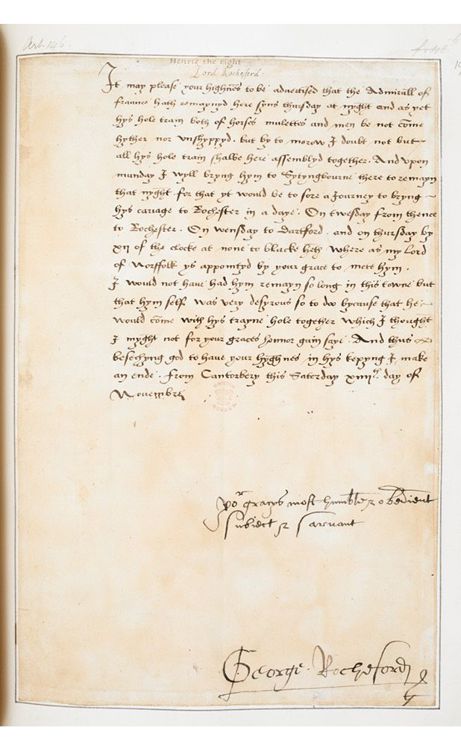 Art. 146.
Henrie the eight
Lord Rocheford
It may please your highnes to be advertised that the Admirall of
fraunce hath remaynyd here syns thursday at nyght and as yet
hys hole train both of horses mulettes and men be not come
hyther nor unshyppyd. but by to morow I doubt not but
all hys hole train shalbe here assemblyd together. And upon
munday I wyll bryng hym to Sytyngbourne there to remayn
that nyght for that yt would be to sore a Journey to bryng
hys cariage to Rochester in a daye. On twesday from thence
to Rochester. On wensday to Dartford. and on thursday by
xii of the clocke at none to blacke heth where as my lord
of Norffolk ys appointyd by your grace to mete hym.
I would not have had hym remayn so long in this towne but
that hym self was very desyrous so to do bycause that he
would come with hys trayne hole together which I thought
I myght not for your graces honnor gain saye. And thus
besechyng god to have your hyghnes in hys kepyng I make
an ende. from Cantorbery this Saterday xiiiiᵗʰ day of
Novembre
yoʳ graces most humble & obedient
subiect & sarvant
George Rocheford